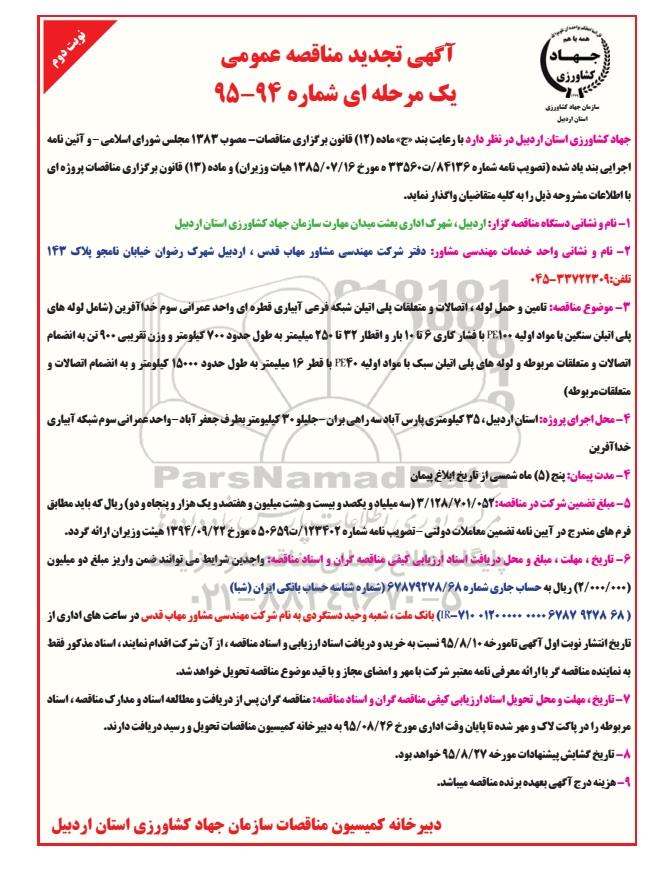 نوبت دوم
همه با هم
جهاد
کشاورزی
سازمان جهاد کشاورزی
استان اردبیل
آگهی تجدید مناقصه عمومی
یک مرحله ای شماره ۹۴-۹۵
جهاد کشاورزی استان اردبیل در نظر دارد با رعایت بند «ج» ماده (۱۲) قانون برگزاری مناقصات- مصوب ۱۳۸۳ مجلس شورای اسلامی - و آئین نامه
اجرایی بند یاد شده (تصویب نامه شماره ۸۴۱۳۶/ت۳۳۵۶۰ ه مورخ ۱۳۸۵/۰۷/۱۶ هیات وزیران) و ماده (۱۳) قانون برگزاری مناقصات پروژه ای
با اطلاعات مشروحه ذیل را به کلیه متقاضیان واگذار نماید.
۱- نام و نشانی دستگاه مناقصه گزار: اردبیل، شهرک اداری بعثت میدان مهارت سازمان جهاد کشاورزی استان اردبیل
۲- نام و نشانی واحد خدمات مهندسی مشاور: دفتر شرکت مهندسی مشاور مهاب قدس ، اردبیل شهرک رضوان خیابان نامجو پلاک ۱۴۳
تلفن:۳۳۷۲۲۳۰۹-۰۴۵
۳- موضوع مناقصه: تامین و حمل لوله ، اتصالات و متعلقات پلی اتیلن شبکه فرعی آبیاری قطره ای واحد عمرانی سوم خداآفرین (شامل لوله های
پلی اتیلن سنگین با مواد اولیه PE۱۰۰ با فشار کاری ۶ تا ۱۰ بار و اقطار ۳۲ تا ۲۵۰ میلیمتر به طول حدود ۷۰۰ کیلومتر و وزن تقریبی ۹۰۰ تن به انضمام
اتصالات و متعلقات مربوطه و لوله های پلی اتیلن سبک با مواد اولیه PE۴۰ با قطر ۱۶ میلیمتر به طول حدود ۱۵۰۰۰ کیلومتر و به انضمام اتصالات و
متعلقات‌مربوطه)
۴- محل اجرای پروژه: استان اردبیل، ۳۵ کیلومتری پارس آباد سه راهی بران -جلیلو ۳۰ کیلیومتر بطرف جعفر آباد -واحد عمرانی سوم شبکه آبیاری
خداآفرین
۴- مدت پیمان: پنج (۵) ماه شمسی از تاریخ ابلاغ پیمان
۵- مبلغ تضمین شرکت در مناقصه: ۳/۱۲۸/۷۰۱/۰۵۲ (سه میلیاد و یکصد و بیست و هشت میلیون و هفتصد و یک هزار و پنجاه و دو) ریال که باید مطابق
فرم های مندرج در آیین نامه تضمین معاملات دولتی – تصویب نامه شماره ۱۲۳۴۰۲/ت۵۰۶۵۹ ه مورخ ۱۳۹۴/۰۹/۲۲ هیئت وزیران ارائه گردد.
۶- تاریخ ، مهلت ، مبلغ و محل دریافت اسناد ارزیابی کیفی مناقصه گران و اسناد مناقصه: واجدین شرایط می توانند ضمن واریز مبلغ دو میلیون
(۲/۰۰۰/۰۰۰) ریال به حساب جاری شماره ۶۷۸۷۹۲۷۸/۶۸ (شماره شناسه حساب بانکی ایران (شبا)
(IR-۷۱۰ ۰۱۲۰ ۰۰۰۰ ۰۰۰۰ ۶۷۸۷ ۹۲۷۸ ۶۸) بانک ملت ، شعبه وحید دستگردی به نام شرکت مهندسی مشاور مهاب قدس در ساعت های اداری از
تاریخ انتشار نوبت اول آگهی تامورخه ۹۵/۸/۱۰ نسبت به خرید و دریافت اسناد ارزیابی و اسناد مناقصه ، از آن شرکت اقدام نمایند ، اسناد مذکور فقط
به نماینده مناقصه گر با ارائه معرفی نامه معتبر شرکت با مهر و امضای مجاز و با قید موضوع مناقصه تحویل خواهد شد.
۷- تاریخ ، مهلت و محل تحویل اسناد ارزیابی کیفی مناقصه گران و اسناد مناقصه: مناقصه گران پس از دریافت و مطالعه اسناد و مدارک مناقصه ، اسناد
مربوطه را در پاکت لاک و مهر شده تا پایان وقت اداری مورخ ۹۵/۰۸/۲۶ به دبیرخانه کمیسیون مناقصات تحویل و رسید دریافت دارند.
۸- تاریخ گشایش پیشنهادات مورخه ۹۵/۸/۲۷ خواهد بود.
۹- هزینه درج آگهی بعهده برنده مناقصه میباشد.
دبیرخانه کمیسیون مناقصات سازمان جهاد کشاورزی استان اردبیل
ParsNamadData
۰۲۱-۸۸۳۴۹۶۷۰-۵